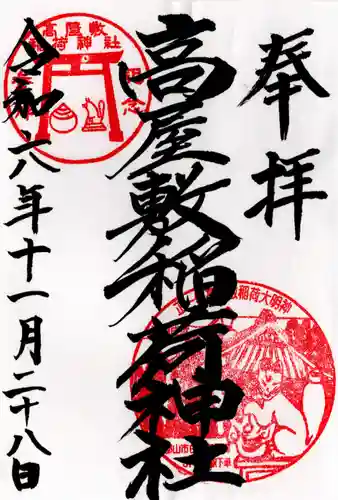 奉拝
高屋敷稲荷神社
令和六年十一月二十八日
高屋敷
稲荷神社
稲荷大明神